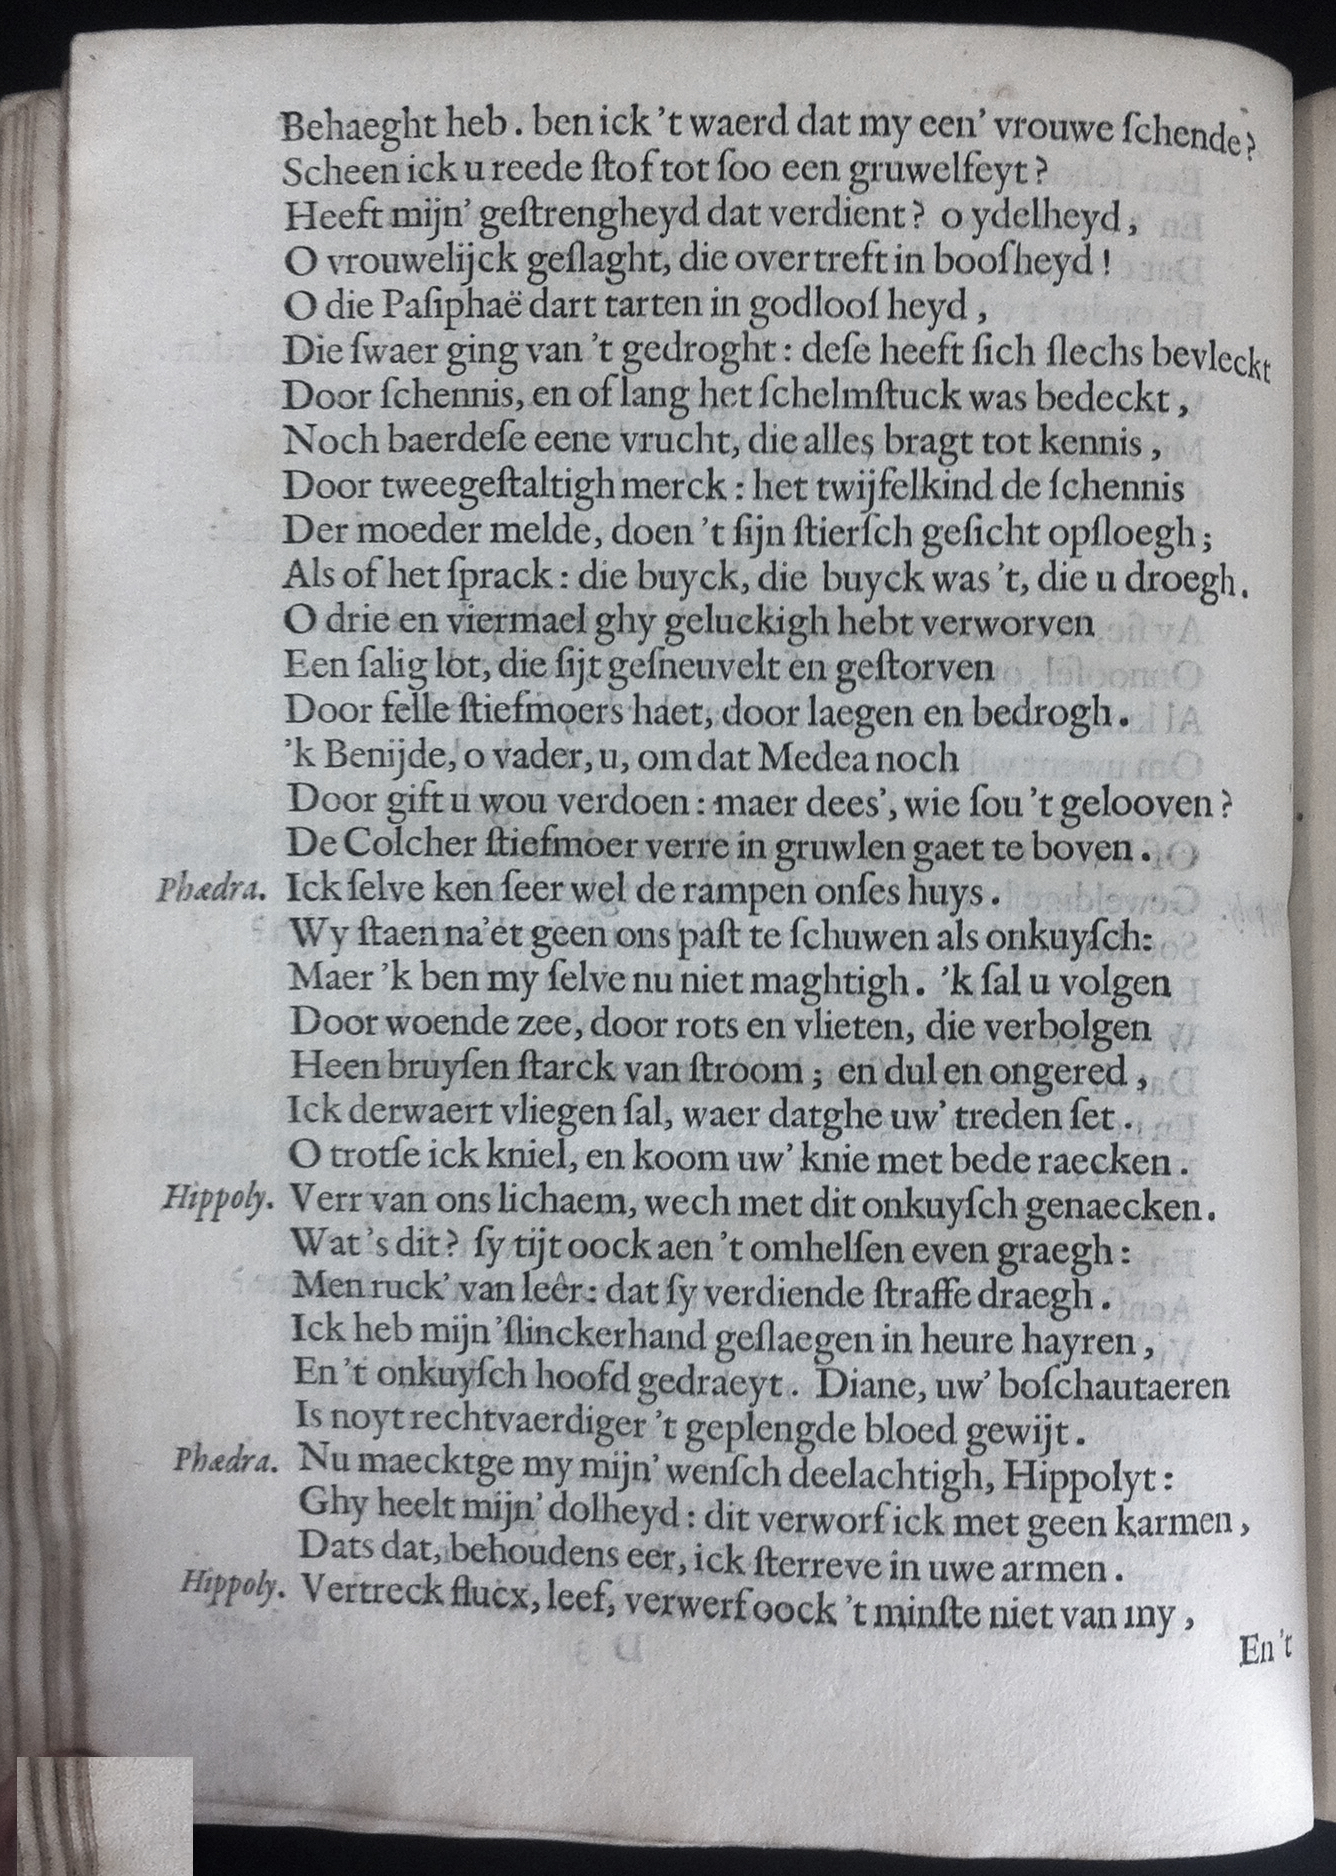 Behaeght heb. ben ick 't waerd dat my een' vrouwe ſchende?
Scheen ick u reede ſtof tot ſoo een gruwelfeyt?
Heeft mijn' geſtrengheyd dat verdient? o ydelheyd,
O vrouwelijck geſlaght, die overtreft in booſheyd!
O die Paſiphaë dart tarten in godlooſheyd,
Die ſwaer ging van 't gedroght: deſe heeft ſich ſlechs bevleckt
Door ſchennis, en of lang het ſchelmſtuck was bedeckt,
Noch baerdeſe eene vrucht, die alles bragt tot kennis,
Door tweegeſtaltigh merck: het twijfelkind de ſchennis
Der moeder melde, doen 't ſijn ſtierſch geſicht opſloegh;
Als of het ſprack: die buyck, die buyck was 't, die u droegh.
O drie en viermael ghy geluckigh hebt verworven
Een ſalig lot, die ſijt geſneuvelt en geſtorven
Door felle ſtiefmoers haet, door laegen en bedrogh.
'k Benijde, o vader, u, om dat Medea noch
Door gift u wou verdoen: maer dees', wie ſou 't gelooven?
De Colcher ſtiefmoer verre in gruwlen gaet te boven.
Phædra. Ick ſelve ken ſeer wel de rampen onſes huys.
Wy ſtaen na'et geen ons paſt te ſchuwen als onkuyſch:
Maer 'k ben my ſelve nu niet maghtigh. 'k ſal u volgen
Door woende zee, door rots en vlieten, die verbolgen
Heen bruyſen ſtarck van ſtroom; en dul en ongered,
Ick derwaert vliegen ſal, waer datghe uw' treden ſet.
O trotſe ick kniel, en koom uw' knie met bede raecken.
Hippoly. Verr van ons lichaem, wech met dit onkuyſch genaecken.
Wat 's dit? ſy tijt oock aen 't omhelſen even graegh:
Men ruck' van leêr: dat ſy verdiende ſtraffe draegh.
Ick heb mijn 'ſlinckerhand geſlaegen in heure hayren,
En 't onkuyſch hoofd gedraeyt. Diane, uw' boſchautaeren
Is noyt rechtvaerdiger 't geplengde bloed gewijt.
Phædra. Nu maecktge my mijn' wenſch deelachtigh, Hippolyt:
Ghy heelt mijn' dolheyd: dit verworf ick met geen karmen,
Dats dat, behoudens eer, ick ſterreve in uwe armen.
Hippoly. Vertreck flucx, leef, verwerf oock 't minſte niet van my,
En 't